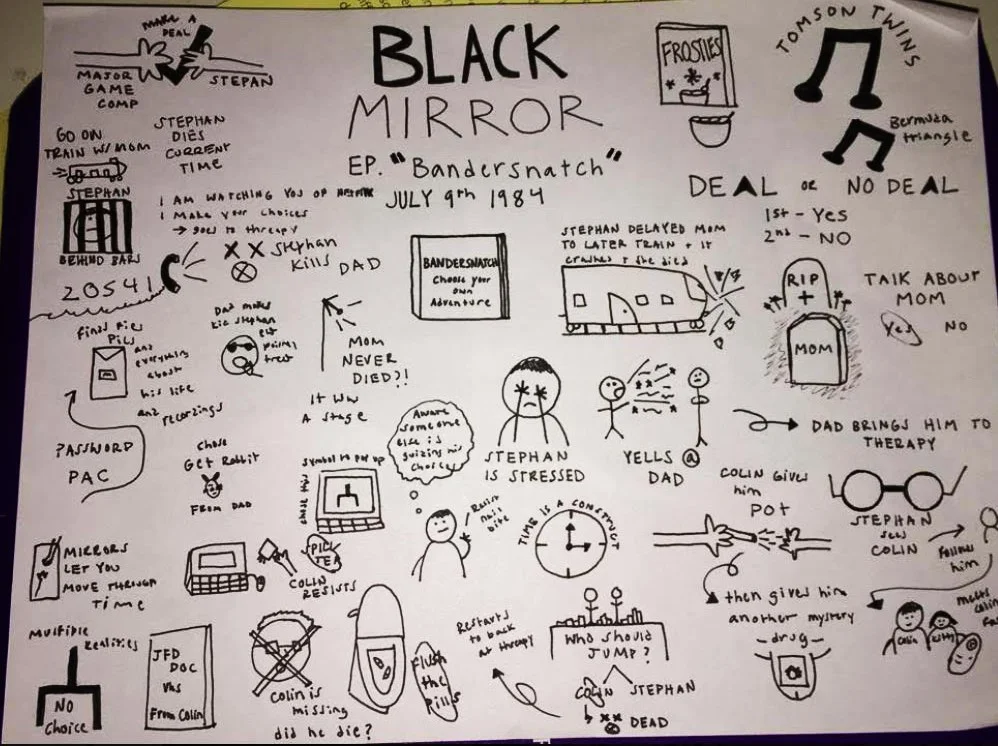 BLACK
MIRROR
EP. "Bandersnatch"
JULY 9th 1984
MAKE A
DEAL
MAJOR
GAME
COMP
STEPAN
FROSTIES
TOMSON TWINS
Bermuda
triangle
DEAL or NO DEAL
1st - Yes
2nd - NO
GO ON
TRAIN W/ MOM
STEPHAN
DIES
CURRENT
TIME
STEPHAN
BEHIND BARS
I AM WATCHING YOU OF
I Make your choices
→ goes to therapy
20541
X X Stephan
Kills DAD
BANDERSNATCH
Choose your
own
Adventure
STEPHAN DELAYED MOM
TO LATER TRAIN + it
crashed + she died
RIP
MOM
TALK ABOUT
MOM
Yes NO
finds
Pics
and
everything
about
his life
and recordings
Dad makes
Stephan
MOM
NEVER
DIED?!
It
A stage
PASSWORD
PAC
chose
Get Rabbit
FROM DAD
symbol to pop up
chose this
Aware
someone
else is
his
choices
STEPHAN
IS STRESSED
YELLS @
DAD
DAD BRINGS HIM TO
THERAPY
COLIN GIVES
him
POT
STEPHAN
sees
COLIN
Follows
him
MIRRORS
LET YOU
MOVE THROUGH
TIME
SPILL
TEA
COLIN
RESISTS
Resist
nail
bite
TIME IS A CONSTRUCT
then gives him
another mystery
- drug -
meets
Colin
Kitty
Multiple
Realities
NO
Choice
JFD
DOC
Vhs
From Colin
Colin is
missing
did he die?
flush
the
Pills
Restarts
to back
at therapy
Who should
JUMP?
COLIN STEPHAN
DEAD